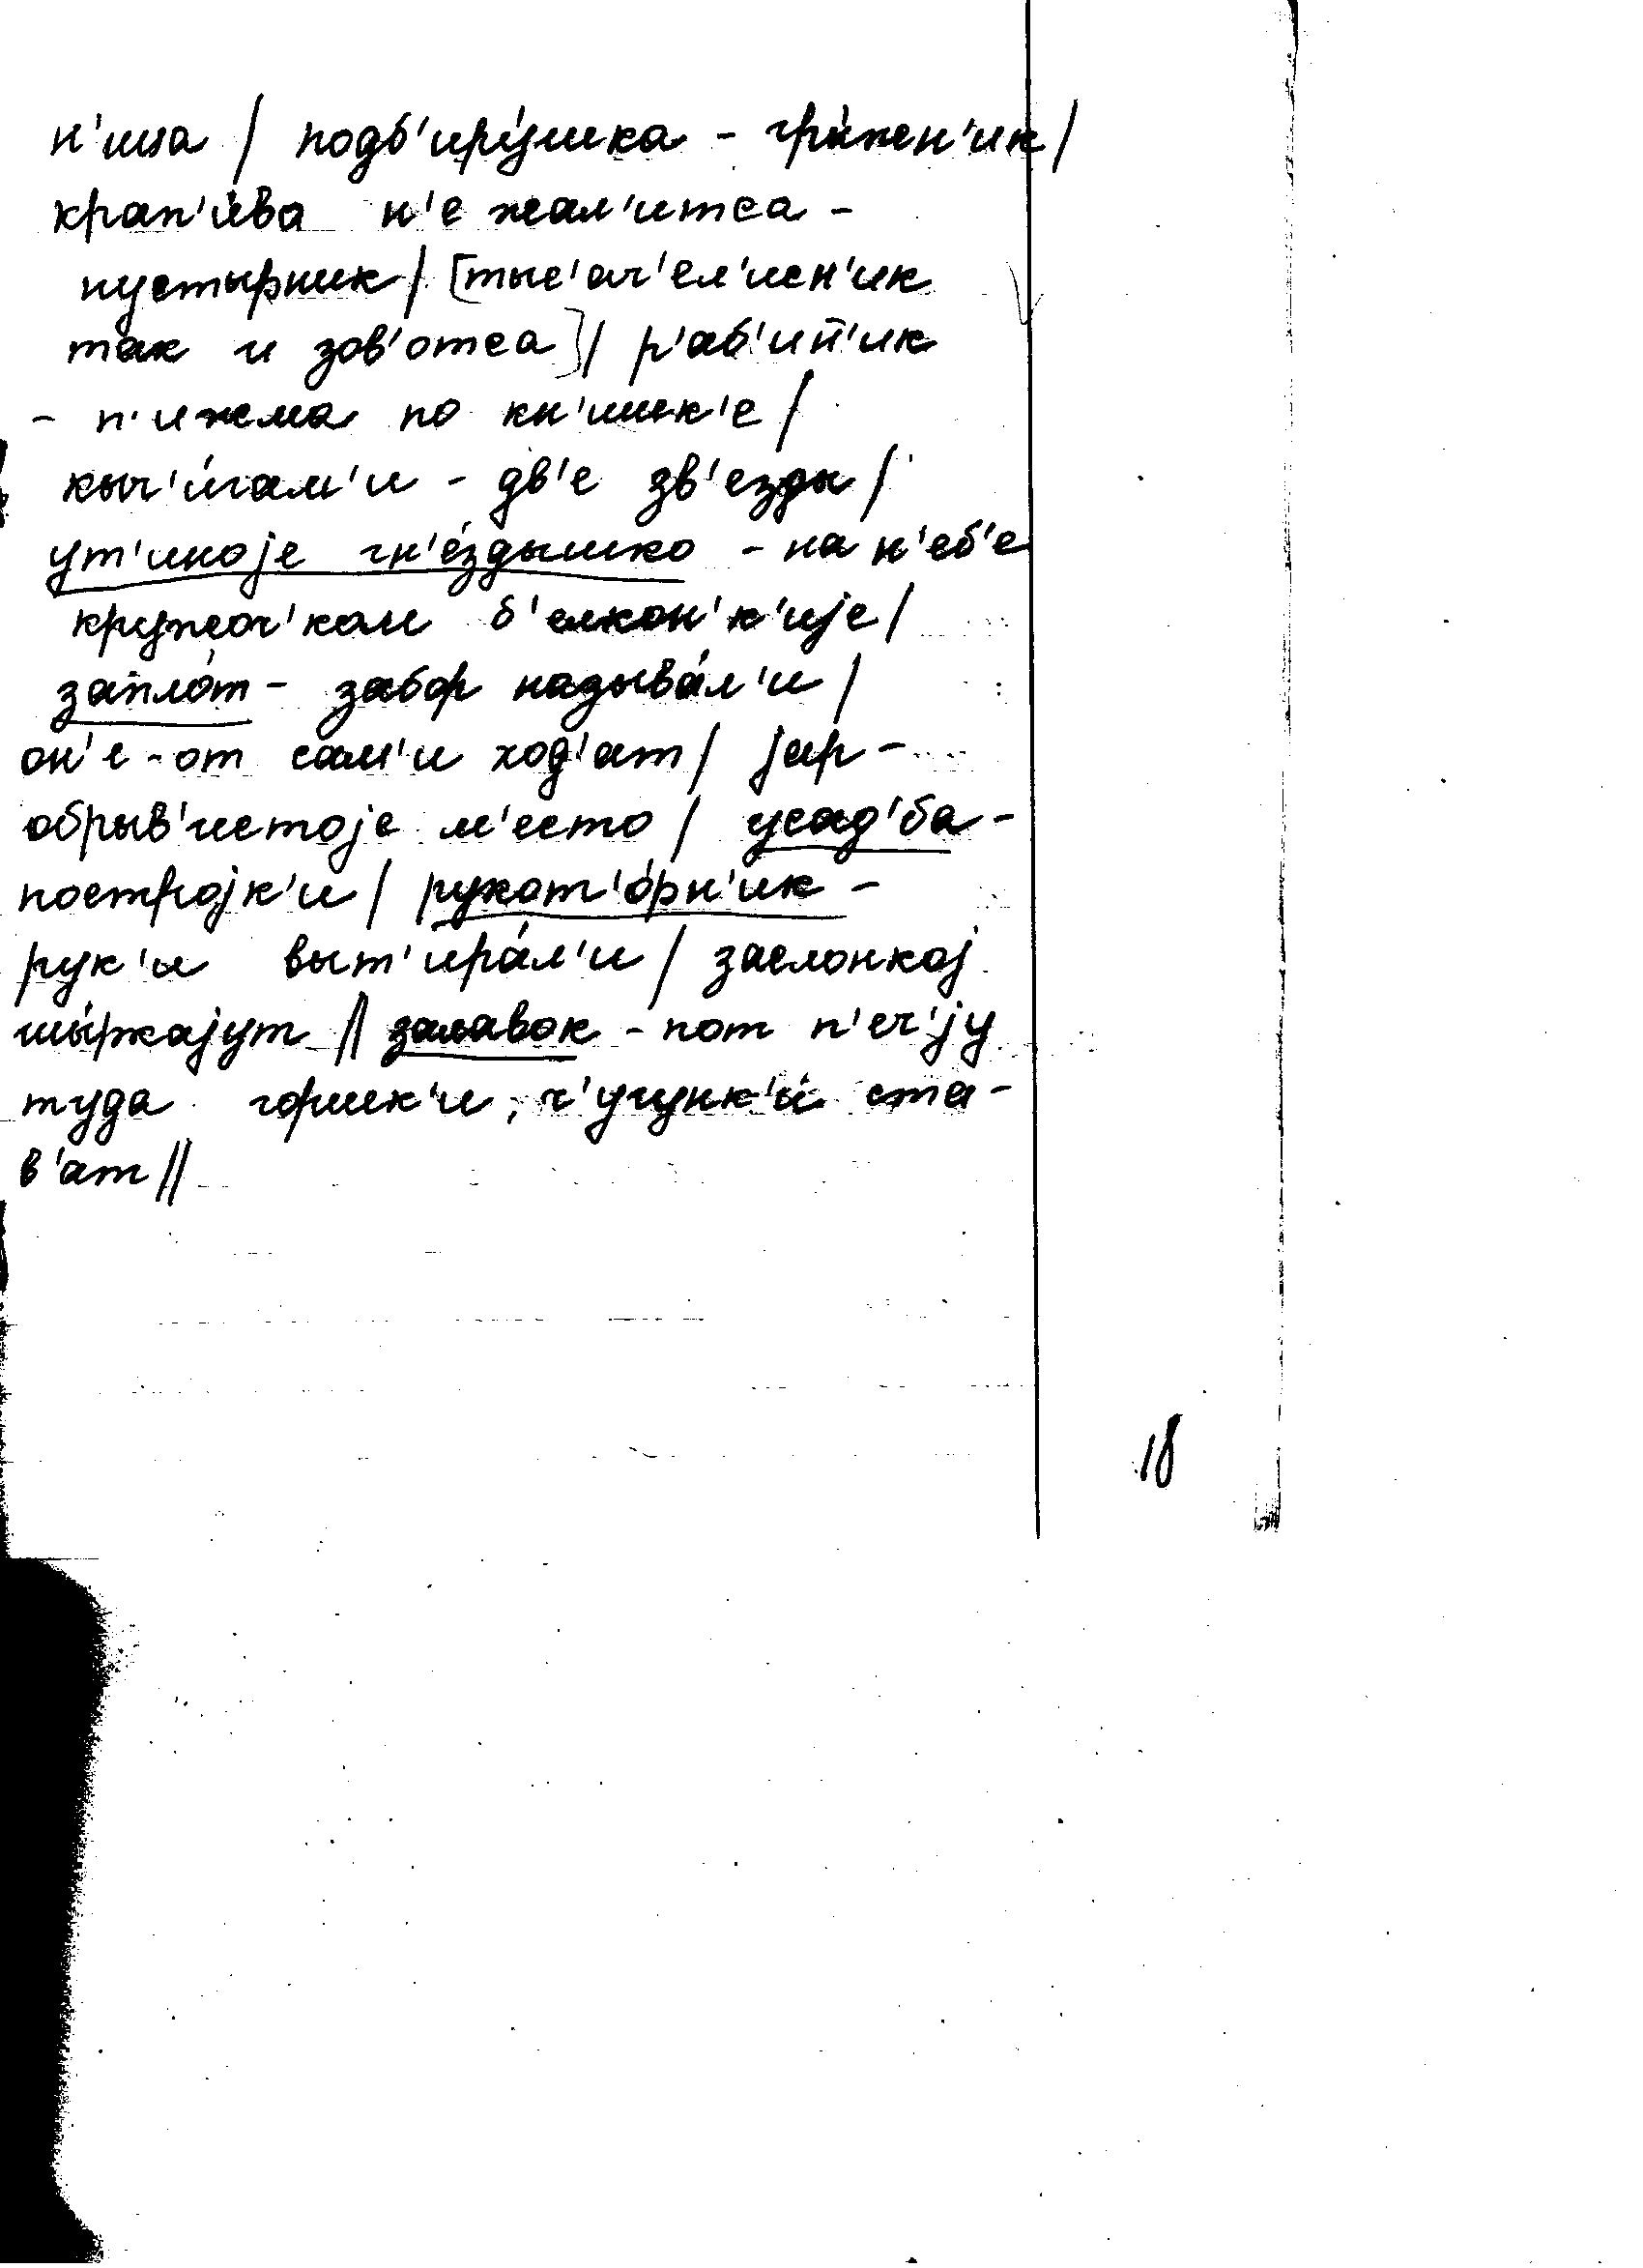 н'ица / подб'иру́шка - гры́жен'ик /
крап'и́ва н'е жал'итса -
пустырник / [тыс'ач'ел'исн'ик
так и зов'отса] / р'аб'ин'ик
- п'ижма по кн'ишк'е /
кыч'и́гам'и - дв'е зв'езды /
ут'иноjе гн'е́здышко - на н'еб'е
кружоч'ком б'елкон'к'иjе /
запло́т - забор называ́л'и /
он'е-от сам'и ход'ат / jар -
обрыв'истоjе м'есто / усад'ба -
построjк'и / рукот'о́рн'ик -
рук'и выт'ира́л'и / заслонкоj
шы́ркаjут // залавок - пот п'еч'jу
туда горшк'и, ч'угунк'и́ ста-
в'ат //
18